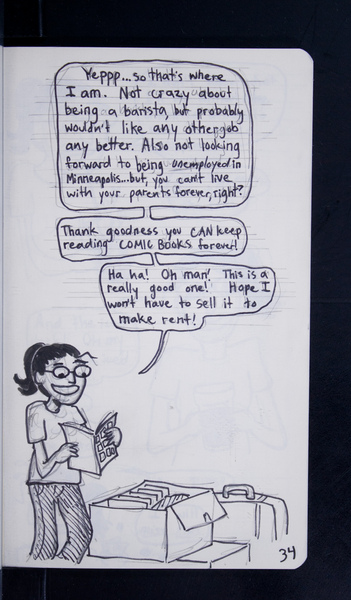 Yeppp...so that's where
I am. Not crazy about
being a barista, but probably
wouldn't like any other job
any better. Also not looking
forward to being unemployed in
Minneapolis...but, you can't live
with your parents forever, right?
Thank goodness you CAN keep
reading COMIC BOOKS forever!
Ha ha! Oh man! This is a
really good one! Hope I
won't have to sell it to
make rent!
34